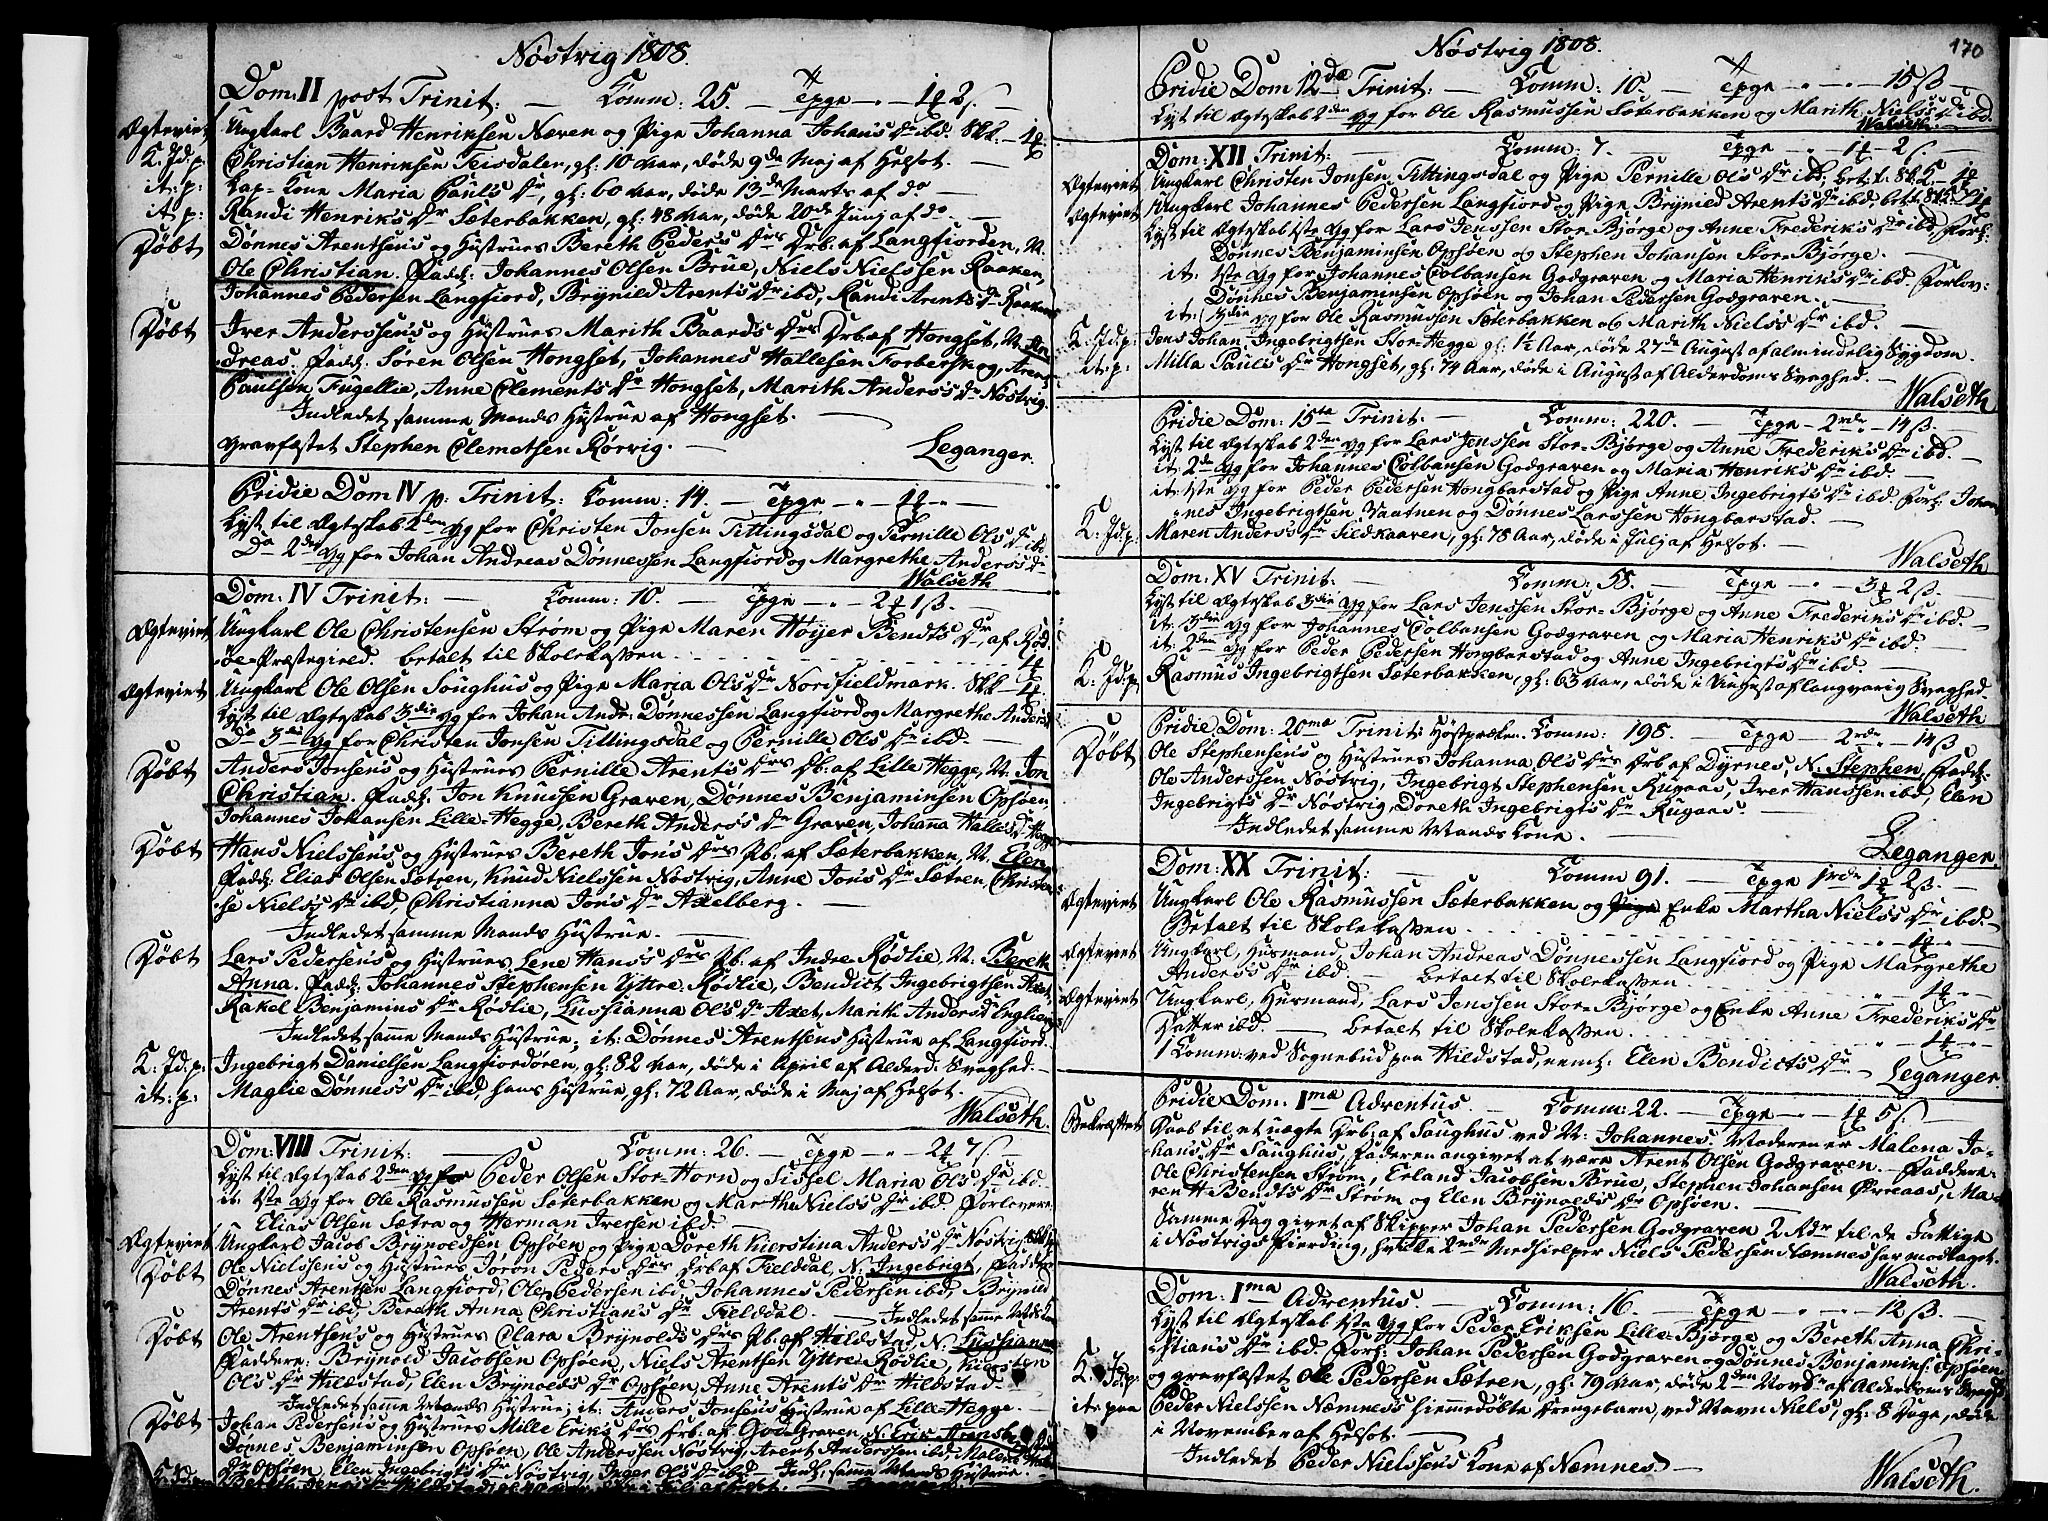 Nöstvig 1808.
Dom: II post Trinit: — Comm: 25. — Tpge — 1 2 ß —
Ægteviet Ungkarl Baard Henriksen Næven og Pige Johanna Johans Dr ibd.
K. Jd. p: Christian Henriksen Teisdalen, gl: 10 Aar, døde 9de Maj af Helsot. —
it: p: Kone Maria Pauls Dr, gl: 60 Aar, døde 13de Marts af do —
it. p: Randi Henriks Dr Sæterbakken, gl: 48 Aar, døde 20de Junj af do —
Døbt Dønnes Arentsens og Hustrues Bereth Peders Drs Drb. af Langfiorden, N.
Ole Christian. Fadd: Johannes Olsen Brue, Niels Nielssen Raaken,
Johannes Pedersen Langfiord, Brynild Arents Dr ibd, Randi Arents Dr Raaken
Døbt Iver Anderssens og Hustrues Marith Baards Drs Drb. af Hongset, N. An-
dreas. Fadd: Søren Olsen Hongset, Johannes Hallesen Forberskog, Arent
Paulsen Fugellie, Anne Clements Dr Hongset, Marith Anders Dr Nöstvig.
Indledet samme Mands Hustrue af Hongset. —
Gravfæstet Stephen Clemetsen Rørvig. — Leganger.
Pridie Dom IV p: Trinit: Comm: 14. — Tpge
Lyst til Ægteskab 2den Gg for Christen Jonsen Tittingsdal og Pernille Ols Dr ibd
Do 2den Gg for Johan Andreas Dønnessen Langfiord og Margrethe Anders Dr
Walseth
Dom: IV Trinit: — Comm: 10. — Tpge — 2 1 ß. —
Ægteviet Ungkarl Ole Christensen Strøm og Pige Maren Höyer Bendts Dr, af Röd-
öe-Præstegield. betalt til Skolekassen
Ægteviet Ungkarl Ole Olsen Soughus og Pige Maria Ols Dr Norsfieldmark.
Lyst til Ægteskab 3die Gg for Johan Andr: Dønnessen Langfiord og Margrethe Anders Dr
Do 3die Gg for Christen Jonsen Tittingsdal og Pernille Ols Dr ibd. —
Døbt Anders Jonsens og Hustrues Pernille Arents Drs Db. af Lille Hegge, N. Jon
Christian. Fadd: Jon Knudsen Graven, Dønnes Benjaminsen Opsøen,
Johannes Johansen Lille-Hegge, Bereth Anders Dr Graven, Johanna Halles Dr Hegge
Døbt Hans Nielssens og Hustrues Bereth Jons Drs Pb. af Sæterbakken, N. Elen
Fadd: Elias Olsen Sætren, Knud Nielssen Nöstvig, Anne Jons Dr Sætren, Christen-
se Niels Dr ibd, Christianna Jons Dr Axelberg. —
Indledet samme Mands Hustrue. —
Døbt Lars Pedersens og Hustrues Lene Hans Drs Pb. af Indre Rødlie, N. Bereth
Anna. Fadd: Johannes Stephensen Yttre Rødlie, Bendict Ingebrigtsen Axet,
Rakel Benjamins Dr Rødlie, Lussianna Ols Dr Axet, Marith Anders Dr
Indledet samme Mands Hustrue; it: Dønnes Arentsens Hustrue af Langfiord.
K. Jd: p: Ingebrigt Danielsen Langfiordören, gl: 82 Aar, døde i April af Alderd: Svaghed. —
it: p: Maglie Dønnes Dr ibd, hans Hustrue, gl: 72 Aar, døde i Maj af Helsot. —
Walseth.
Dom: VIII Trinit: — Comm: 26. — Tpge — 2 7 ß —
Lyst til Ægteskab 2den Gg for Peder Olsen Stor-Horn og Sissel Maria Ols Dr ibd.
it: 1ste Gg for Ole Rasmussen Sæterbakken og Martha Niels Dr ibd. Forlovere
Elias Olsen Sætra og Herman Iversen ibd.
Ægteviet Ungkarl Jacob Brynoldsen Opsøen og Pige Doreth Kierstina Anders Dr Nöstvig
Døbt Ole Nielssens og Hustrues Joron Peders Drs Drb af Fieldal, N. Ingebrigt, Faddere
Dønnes Arentsen Langfiord, Ole Pedersen ibd, Johannes Pedersen ibd, Brynild
Arents Dr ibd, Bereth Anna Christians Dr Fieldal — Indledet samme Mands
Døbt Ole Arentsens og Hustrues Clara Brynolds Drs Pb. af Hildstad, N: Lussianna
Faddere: Brynold Jacobsen Opsøen, Niels Arentsen Yttre Rødlie, Kiersten
Ols Dr Hildstad, Elen Brynolds Dr Opsøen, Anne Arents Dr Hildstad. —
Indledet samme Mands Hustrue; it. Anders Jonsens Hustrue af Lille-Hegge. —
Døbt Johan Pedersens og Hustrues Mille Eriks Drs Drb. af Godgraven, N. Eric
Dønnes Benjaminsen Opsøen, Ole Anderssen Nöstvig, Arent Anderssen ibd, Malene
Dr Opsøen, Elen Ingebrigts Dr Nöstvig, Inger Ols Dr ibd. Indl: samme Mands Hustrue.
Nöstvig 1808. 170
Pridie Dom 12da Trinit: — Comm: 10. — Tpge — 15 ß —
Lyst til Ægteskab 2den Gg for Ole Rasmussen Sæterbakken og Marith Niels Dr ibd.
Walseth.
Dom: XII Trinit: — Comm: 7. — Tpge — 1 2 ß. —
Ægteviet Ungkarl Christen Jonsen Tittingsdal og Pige Pernille Ols Dr ibd. bet: t:
Ægteviet Ungkarl Johannes Pedersen Langfiord og Pige Brynild Arents Dr ibd. bet: t:
Lyst til Ægteskab 1ste Gg for Lars Jenssen Stor-Bjørge og Anne Frederiks Dr ibd. Forl:
Dønnes Benjaminsen Opsøen og Stephen Johansen Stor-Bjørge. —
it: 1ste Gg for Johannes Colbansen Godgraven og Maria Henriks Dr ibd. Forlov:
Dønnes Benjaminsen Opsøen og Johan Pedersen Godgraven. —
it: 3die Gg for Ole Rasmussen Sæterbakken og Marith Niels Dr ibd. —
K. Jd. p: Jens Johan Ingebrigtsen Stor-Hegge gl: 1½ Aar, døde 27de August af almindelig Sygdom.
it: p: Milla Pauls Dr Hongset, gl: 74 Aar, døde i August af Alderdoms Svaghed. —
Walseth
Pridie Dom: 15ta Trinit. — Comm: 220. — Tpge — 2 rdr 14 ß. —
Lyst til Ægteskab 2den Gg for Lars Jenssen Stor-Bjørge og Anne Frederiks Dr ibd. —
it: 2de Gg for Johannes Colbansen Godgraven og Maria Henriks Dr ibd. —
it: 1ste Gg for Peder Pedersen Hongbarstad og Pige Anne Ingebrigts Dr ibd. Forl: Johan-
nes Ingebrigtsen Vaatnen og Dønnes Larssen Hongbarstad. —
K: Jd. p: Maren Anders Dr Sildkaaren, gl: 78 Aar, døde i Julj af Helsot. —
Walseth
Dom: XV Trinit: — Comm: 58. — Tpge — 3 2 ß. —
Lyst til Ægteskab 3die Gg for Lars Jenssen Stor-Bjørge og Anne Frederiks Dr ibd. —
it: 3die Gg for Johannes Colbansen Godgraven og Maria Henriks Dr ibd. —
it: 2den Gg for Peder Pedersen Hongbarstad og Anne Ingebrigts Dr ibd. —
K. Jd. p Rasmus Ingebrigtsen Sæterbakken, gl: 63 Aar, døde i August af langvarig Svaghed.
Walseth
Pridie Dom: 20ma Trinit: Höstpræken. Comm: 198. — Tpge — 2 rdr 14 ß
Døbt Ole Stephensens og Hustrues Johanna Ols Drs Drb af Dyrnes, N. Stephen, Fadd:
Ole Anderssen Nöstvig, Ingebrigt Stephensen Rugaas, Iver Hanssen ibd, Elen
Ingebrigts Dr Nöstvig, Doreth Ingebrigts Dr Rugaas. —
Indledet samme Mands Kone. — Leganger.
Dom: XX Trinit: — Comm 91. — Tpge 1 rdr 1 2 ß. —
Ægteviet Ungkarl Ole Rasmussen Sæterbakken og Enke Martha Niels Dr ibd. —
Betalt til Skolekassen
Ægteviet Ungkarl, Husmand, Johan Andreas Dønnessen Langfiord og Pige Margrethe
Anders Dr ibd. — betalt til Skolekassen
Ægteviet Ungkarl, Husmand, Lars Jenssen Stor-Bjørge og Enke Anne Frederiks Dr
Datter ibd. — betalt til Skolekassen
1 Comm: ved Sognebud paa Hildstad, neml: Elen Bendicts Dr. — Leganger
Pridie Dom. Ima Adventus. — Comm: 22. — Tpge — 1 5 ß. —
Bekræftet Daab til et uægte Drb. af Saughus ved N: Johannes. Moderen er Malena Jo-
hans Dr Saughus, Faderen angivet at være Arent Olsen Godgraven. — Faddere
Ole Christensen Strøm, Erland Jacobsen Brue, Stephen Johansen Øvreaas, Ma-
ren H: Bendts Dr Strøm og Elen Brynolds Dr Opsøen. —
Samme Dag givet af Skipper Johan Pedersen Godgraven 2 Rdr til de Fattige
i Nöstvigs Fierding, hvilke 2 rdr Medhielper Niels Pedersen Næmnes har modtaget.
Walseth.
Dom: Ima Adventus. — Comm: 16. — Tpge — 12 ß. —
Lyst til Ægteskab 1ste Gg for Peder Eriksen Lille-Bjørge og Bereth Anna Chri-
stians Dr ibd. Forl: Johan Pedersen Godgraven og Dønnes Benjamins: Opsøen
K. Jd. p: og gravfæstet Ole Pedersen Sætren, gl: 79 Aar, døde 2den Novbr af Alderdoms Svagh:
it: paa Peder Nielssen Næmnes hiemmedøbte Drengebarn, ved Navn Niels, gl: 8 Dage, døde
i November af Helsot. —
Indledet Peder Nielssens Kone af Næmnes. —
Walseth.